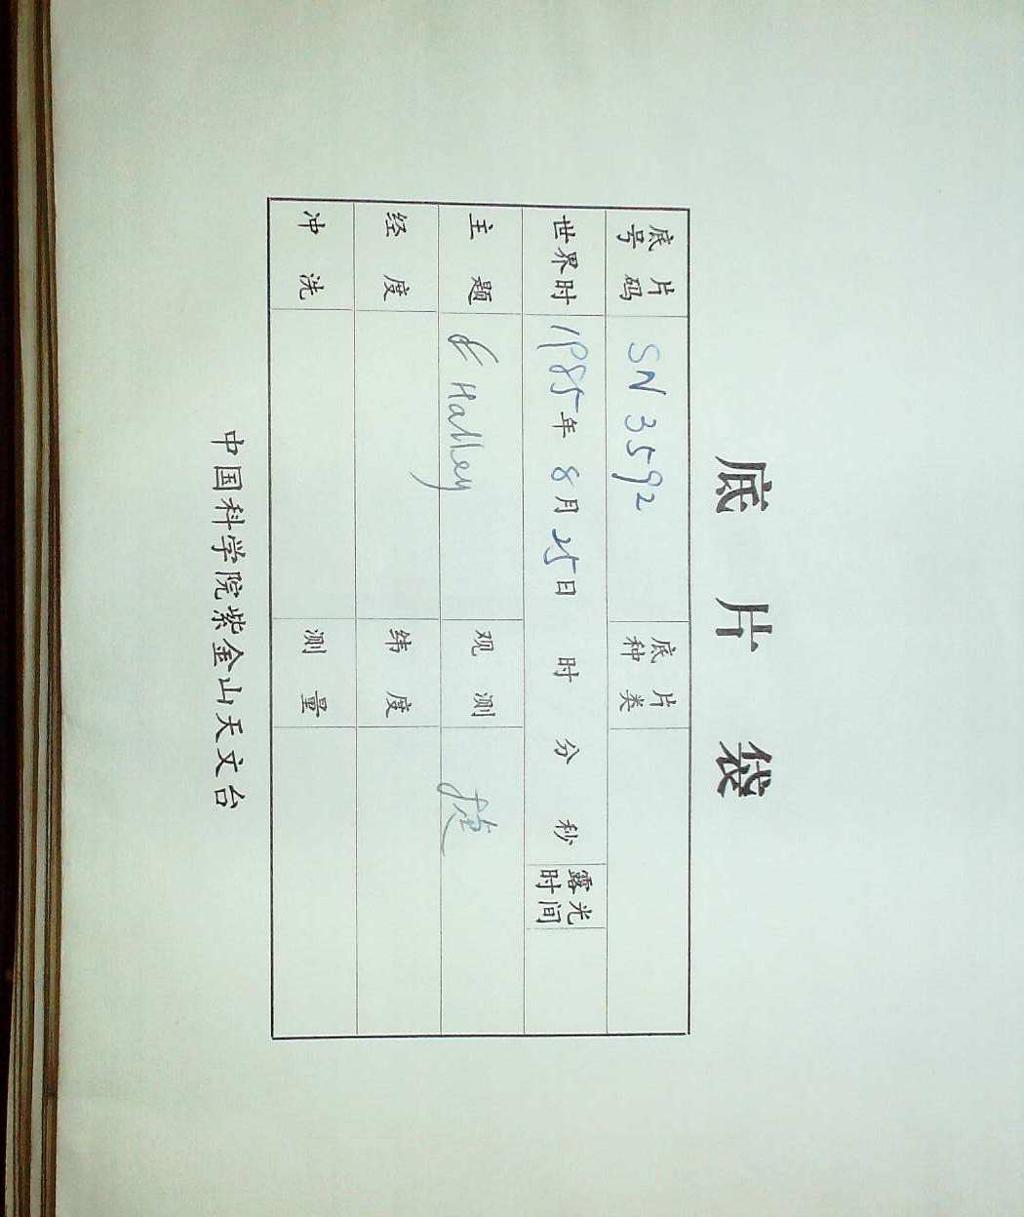 底片袋
底片号码 SN 3592 底片种类
世界时 1985年 8月 25日 时 分 秒 露光时间
主题 Halley 观测 捷
经度 纬度
冲洗 测量
中国科学院紫金山天文台